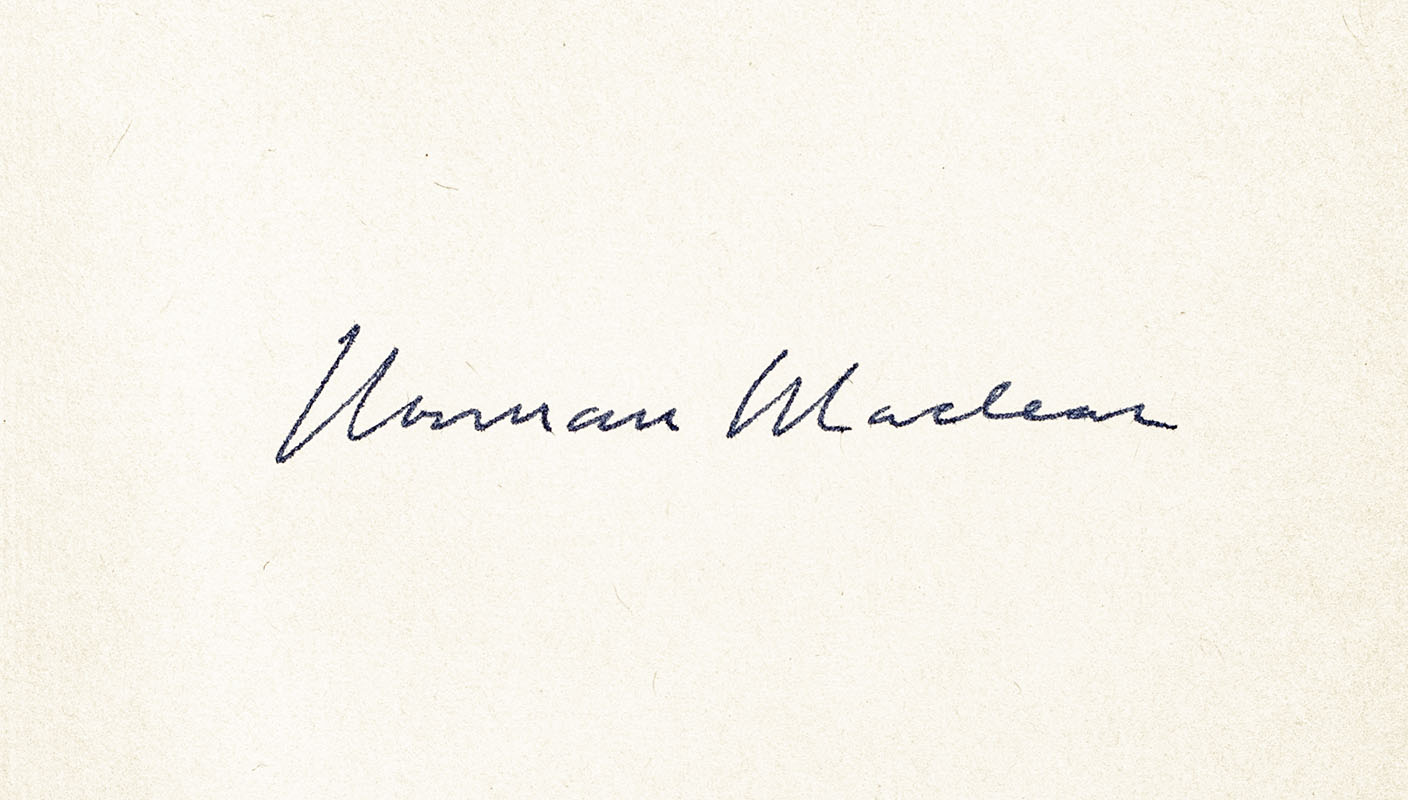 Norman Maclean